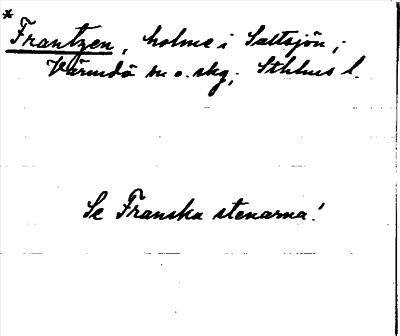 * Frantzen, holme i Saltsjön;
Värmdö sn o. skg; Sthlms l.
Se Franska stenarna!